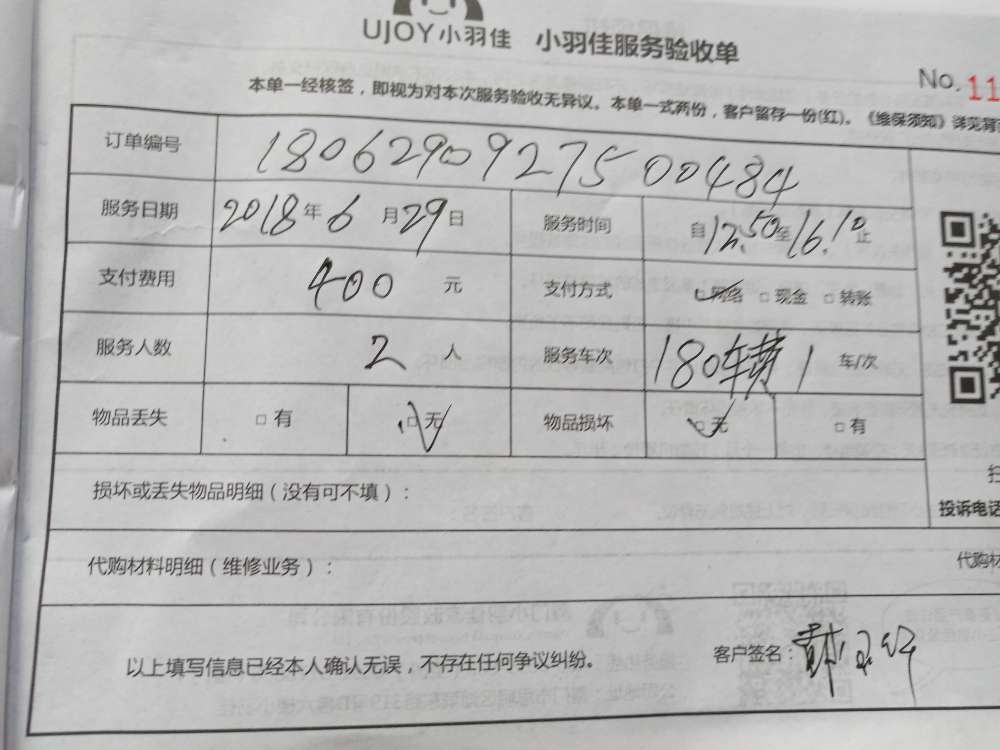 UJOY小羽佳 小羽佳服务验收单
No.11
本单一经核签，即视为对本次服务验收无异议。本单一式两份，客户留存一份(红)。《维保须知》详见背
订单编号 1806290927500484
服务日期 2018年6月29日 服务时间 自12.50至16.10止
支付费用 400元 支付方式 □网络 □现金 □转账
服务人数 2人 服务车次 180辆 1 车/次
物品丢失 □有 □无 物品损坏 □无 □有
损坏或丢失物品明细（没有可不填）：
投诉电话
代购材料明细（维修业务）：
代购材
以上填写信息已经本人确认无误，不存在任何争议纠纷。
客户签名：